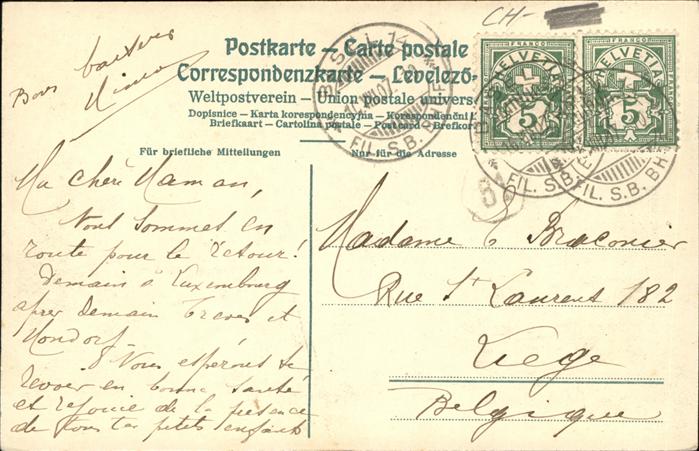 CH-
Postkarte – Carte postale
Correspondenzkarte – Levelező-
Weltpostverein – Union postale univers
Dopisnice – Karta korespondencyjna – Korespondenční l
Briefkaart – Cartolina postale – Postcard – Brefkor
Für briefliche Mitteilungen
Nur für die Adresse
FRANCO
HELVETIA
5
FRANCO
HELVETIA
5
FIL. S.B. BHF
FIL. S.B.
FIL. S.B. BH
8
Bons baisers
Ma chère Maman,
Nous sommes en
route pour le retour!
Demain à Luxembourg
apres demain Treves et
Mondorf.
Nous esperons te
revoir en bonne santé
et rejouie de la présence
de tous tes petits enfants
Madame Braconier
Rue St Laurent 182
Liege
Belgique